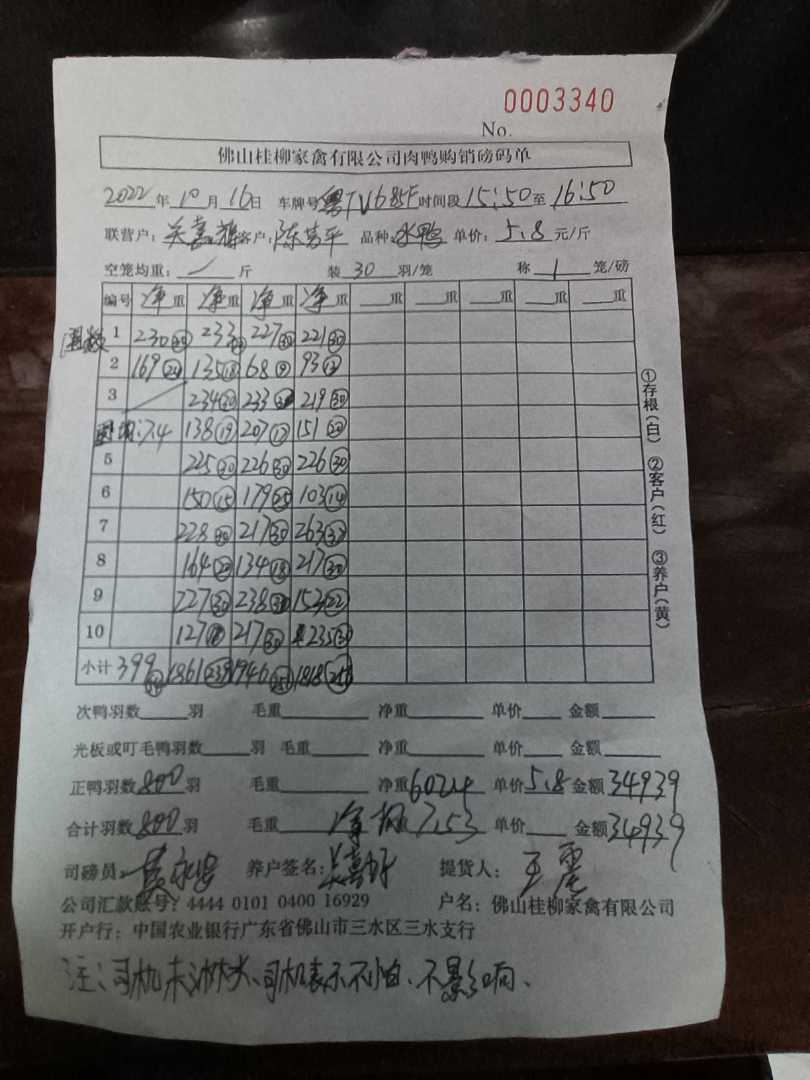 0003340
No.
佛山桂柳家禽有限公司肉鸭购销磅码单
2022年10月16日 车牌号粤TV685F时间段15:50至16:50
联营户:关嘉 客户:陈 平 品种:水鸭 单价:5.8元/斤
空笼均重: 斤 装30羽/笼 称1笼/磅
编号 净重 净重 净重 净重 重 重 重 重
1 230 233 227(30) 221(30)
2 169(24) 135(18) 68(9) 93(13)
3 234(30) 233 219(30)
7.4 138(19) 207 151
5 225(30) 226(30) 226(30)
6 150(15) 179(25) 103(14)
7 228(30) 217(30) 263
8 164 134(18) 217(30)
9 227(30) 238 153(22)
10 127 217(30) 235
小计 399 1861 1946 1818
次鸭羽数 羽 毛重 净重 单价 金额
光板或叮毛鸭羽数 羽 毛重 净重 单价 金额
正鸭羽数800羽 毛重 净重6024 单价5.8 金额34939
合计羽数800羽 毛重 净 重7.53 单价 金额34939
司磅员: 黄永 养户签名:关嘉 提货人:王震
公司汇款账号:4444 0101 0400 16929 户名:佛山桂柳家禽有限公司
开户行:中国农业银行广东省佛山市三水区三水支行
注:司机未 水、司机表示不怕、不影响、
①存根(白) ②客户(红) ③养户(黄)